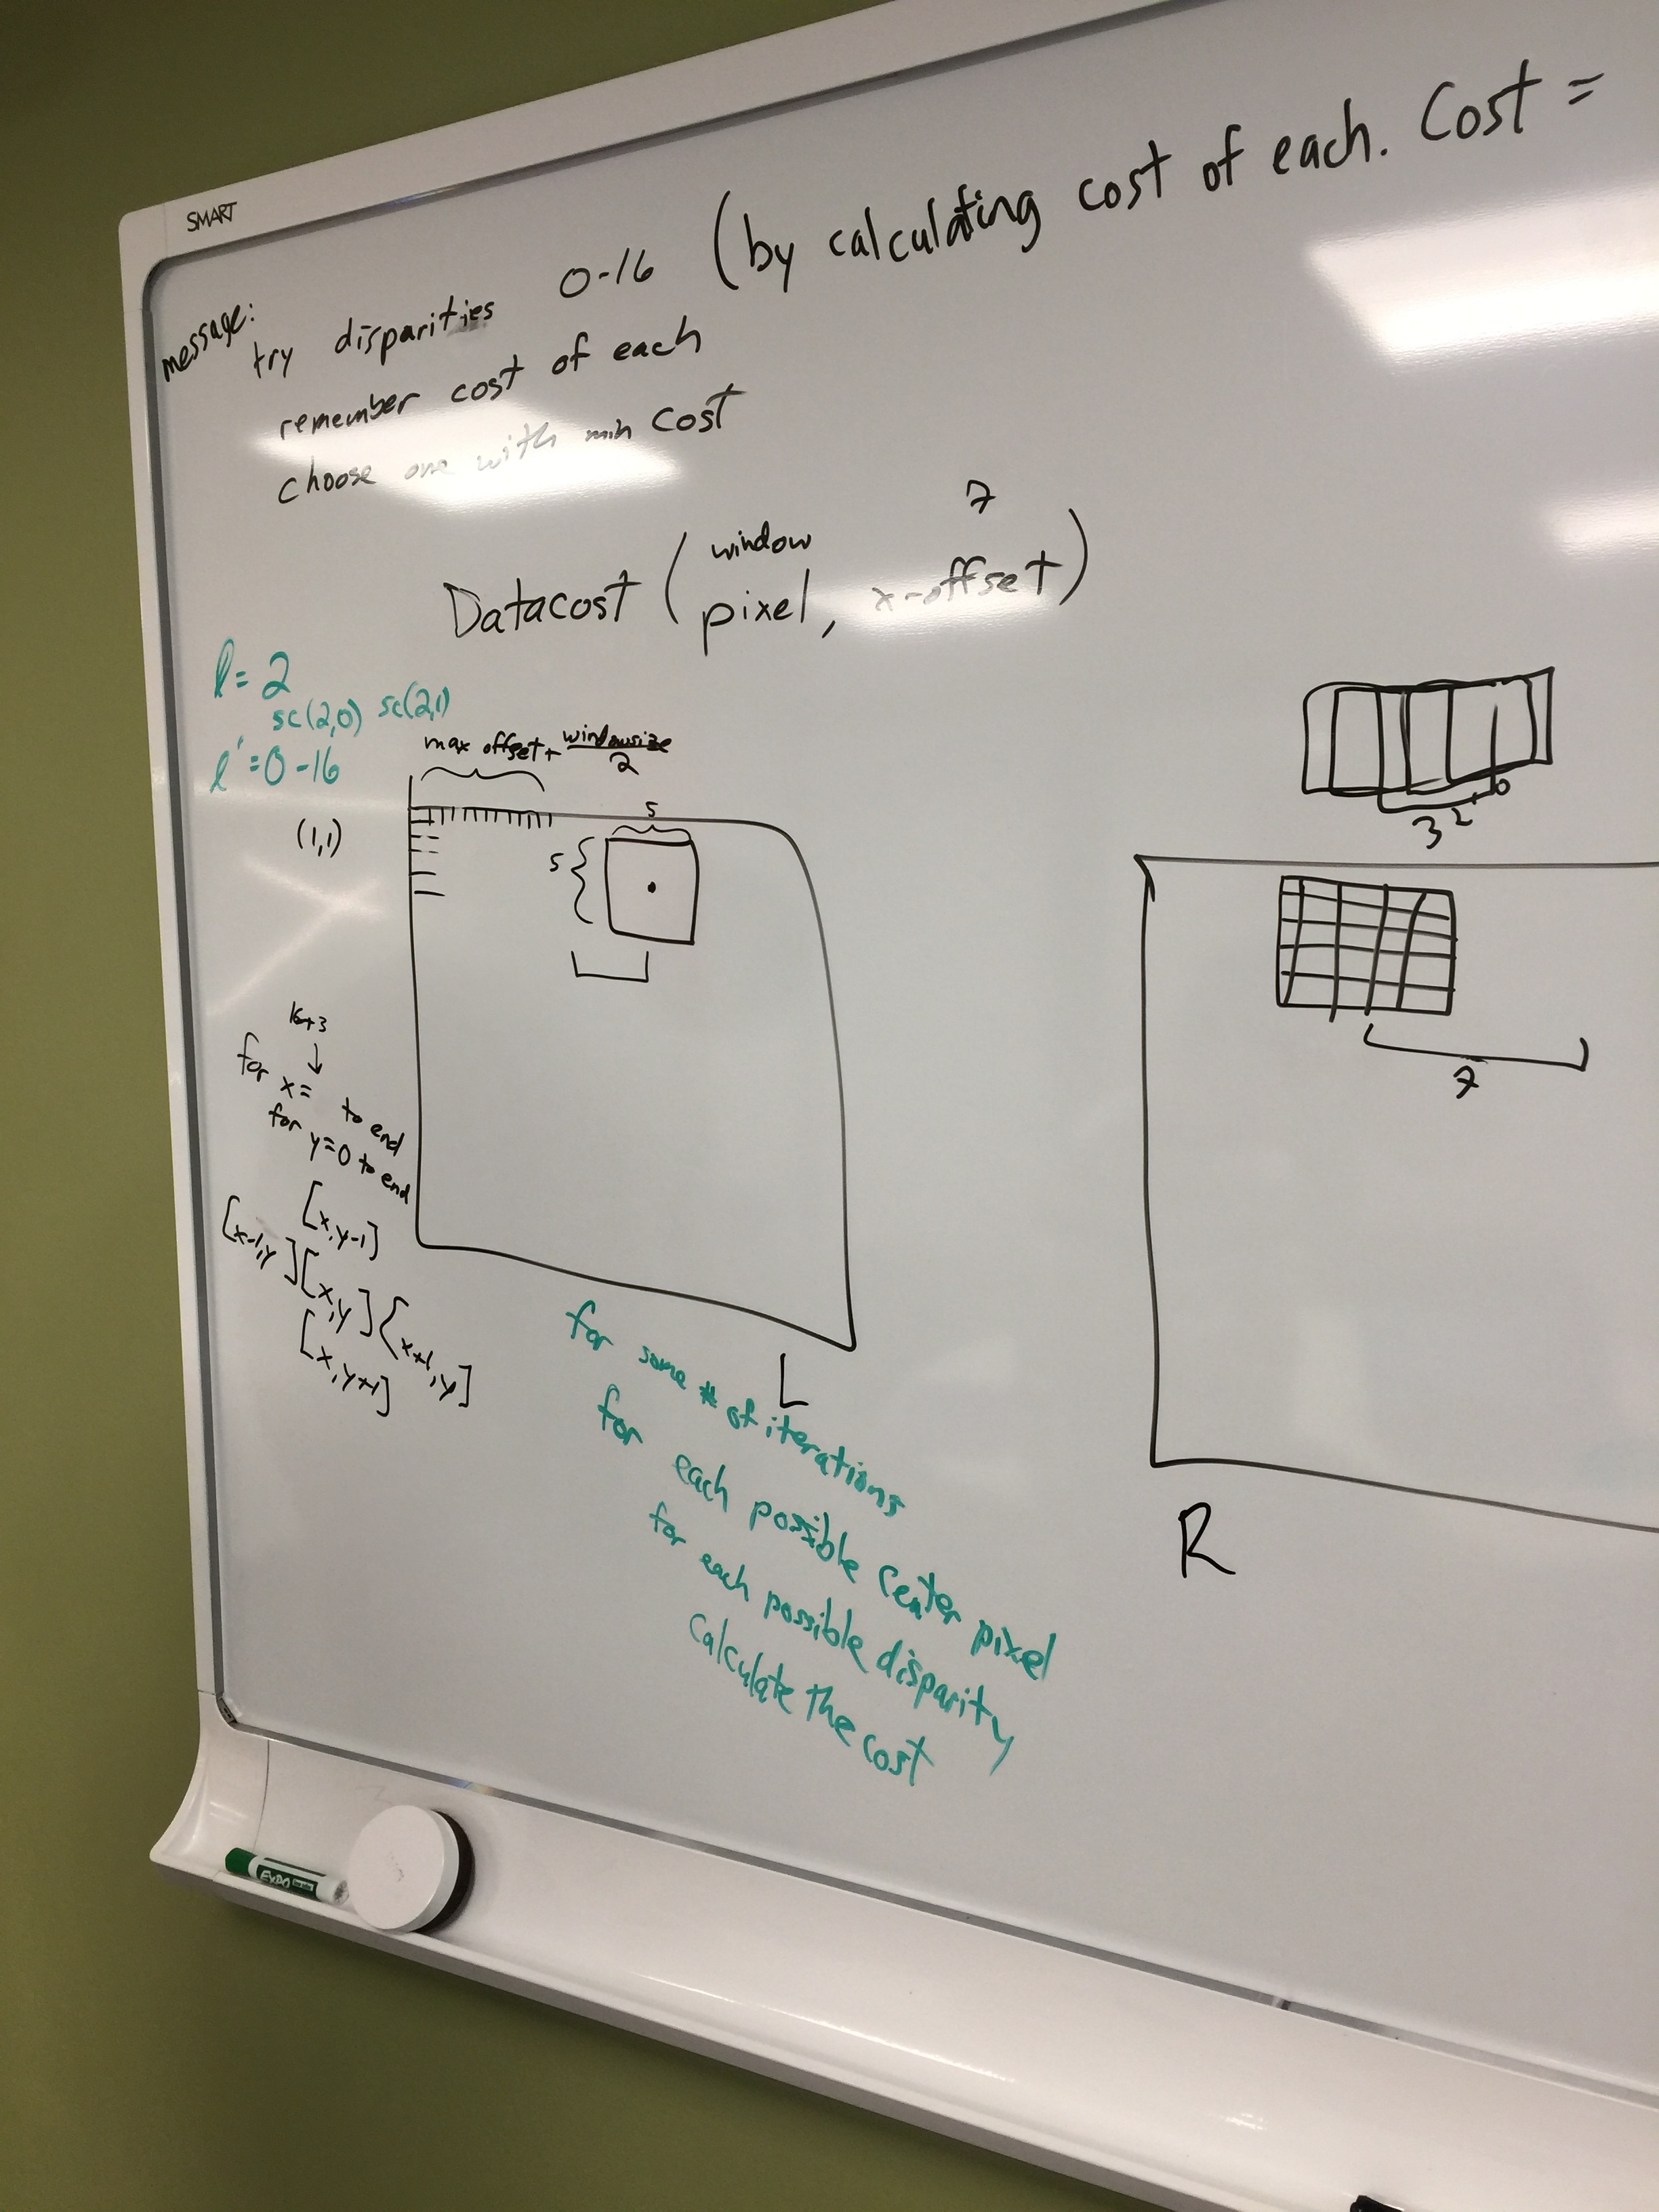 SMART
message:
try disparities 0-16 (by calculating cost of each. Cost =
remember cost of each
choose one with min cost
7
window
Datacost (pixel, x-offset)
l = 2
sc(2,0) sc(2,1)
l' = 0-16
max offset + windowsize
2
(1,1)
5
5
0
1
2
3
7
16+3
↓
for x = to end
for y=0 to end
[x,y-1]
[x-1,y] [x,y] [x+1,y]
[x,y+1]
L
R
for some # of iterations
for each possible center pixel
for each possible disparity
calculate the cost
EXPO